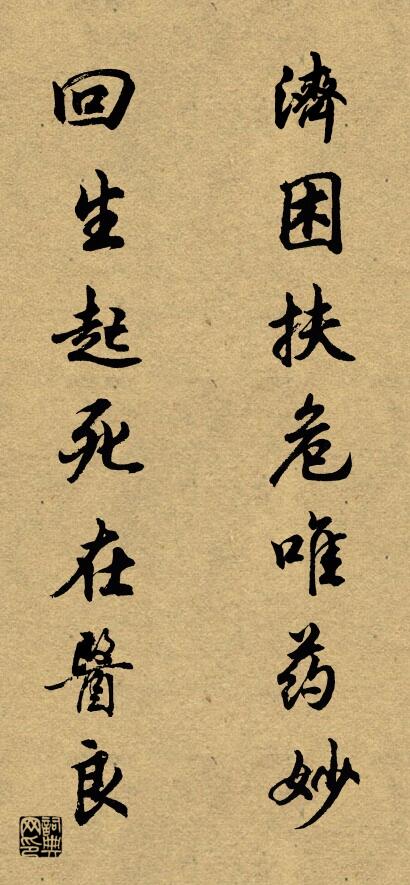 濟困扶危唯药妙
回生起死在醫良
詞典网印